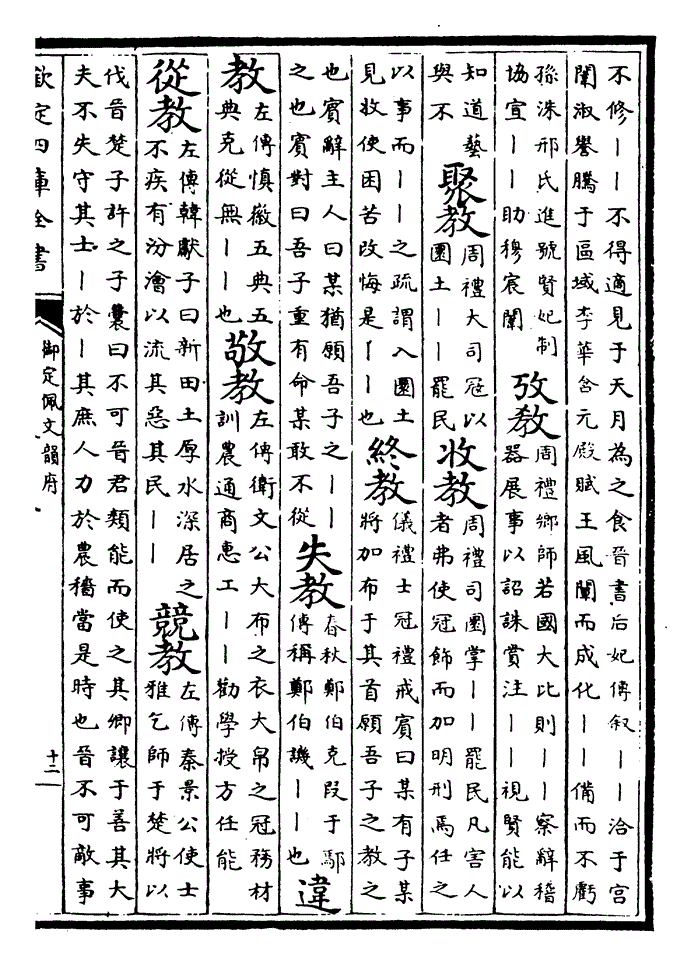 不修丨丨不得適見于天月為之食晉書后妃傳叙丨丨洽于宮
闈淑譽騰于區域李華含元殿賦王風闡而成化丨丨備而不虧
孫洙邢氏進號賢妃制
協宣丨丨助穆宸闈
攷教
周禮鄉師若國大比則丨丨察辭稽
器展事以詔誅賞注丨丨視賢能以
知道藝
與不
聚教
周禮大司冦以
圜土丨丨罷民
收教
周禮司圜掌丨丨罷民凡害人
者弗使冠飾而加明刑焉任之
以事而丨丨之疏謂入圜土
見收使困苦改悔是丨丨也
終教
儀禮士冠禮戒賓曰某有子某
將加布于其首願吾子之教之
也賓辭主人曰某猶願吾子之丨丨
之也賓對曰吾子重有命某敢不從
失教
春秋鄭伯克段于鄢
傳稱鄭伯譏丨丨也
違
教
左傳慎徽五典五
典克從無丨丨也
敬教
左傳衛文公大布之衣大帛之冠務材
訓農通商惠工丨丨勸學授方任能
從教
左傳韓獻子曰新田土厚水深居之
不疾有汾澮以流其惡其民丨丨
競教
左傳秦景公使士
雅乞師于楚將以
伐晉楚子許之子囊曰不可晉君類能而使之其卿讓于善其大
夫不失守其士丨於丨其庶人力於農穡當是時也晉不可敵事
欽定四庫全書
御定佩文韻府
十二